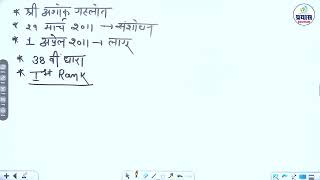 * श्री अशोक गहलोत
* 29 मार्च 2011 → संशोधन
* 1 अप्रैल 2011 → लागू
* 38 वीं धारा
* Ist Rank
प्रयास